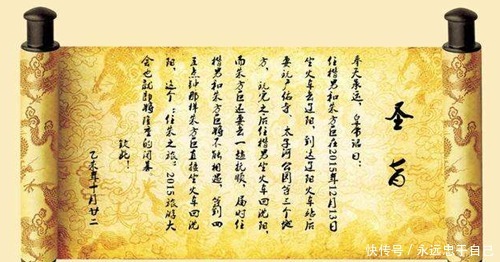 圣旨
奉天承运，皇帝诏曰：
任楷男和朱方巨在2015年12月13日
坐火车去辽阳，到达辽阳火车站后
要玩广佑寺、太子河公园等三个地
方，玩完之后任楷男坐火车回沈阳，
而朱方巨还要去一趟抚顺，届时任
楷男和朱方巨将不能相遇，等到四
五点钟那样朱方巨直接坐火车回沈
阳，这个：任朱之旅：2015旅游大
会也就即将隆重的闭幕
钦此！
乙未年十月廿二
快传号／永远忠于自己